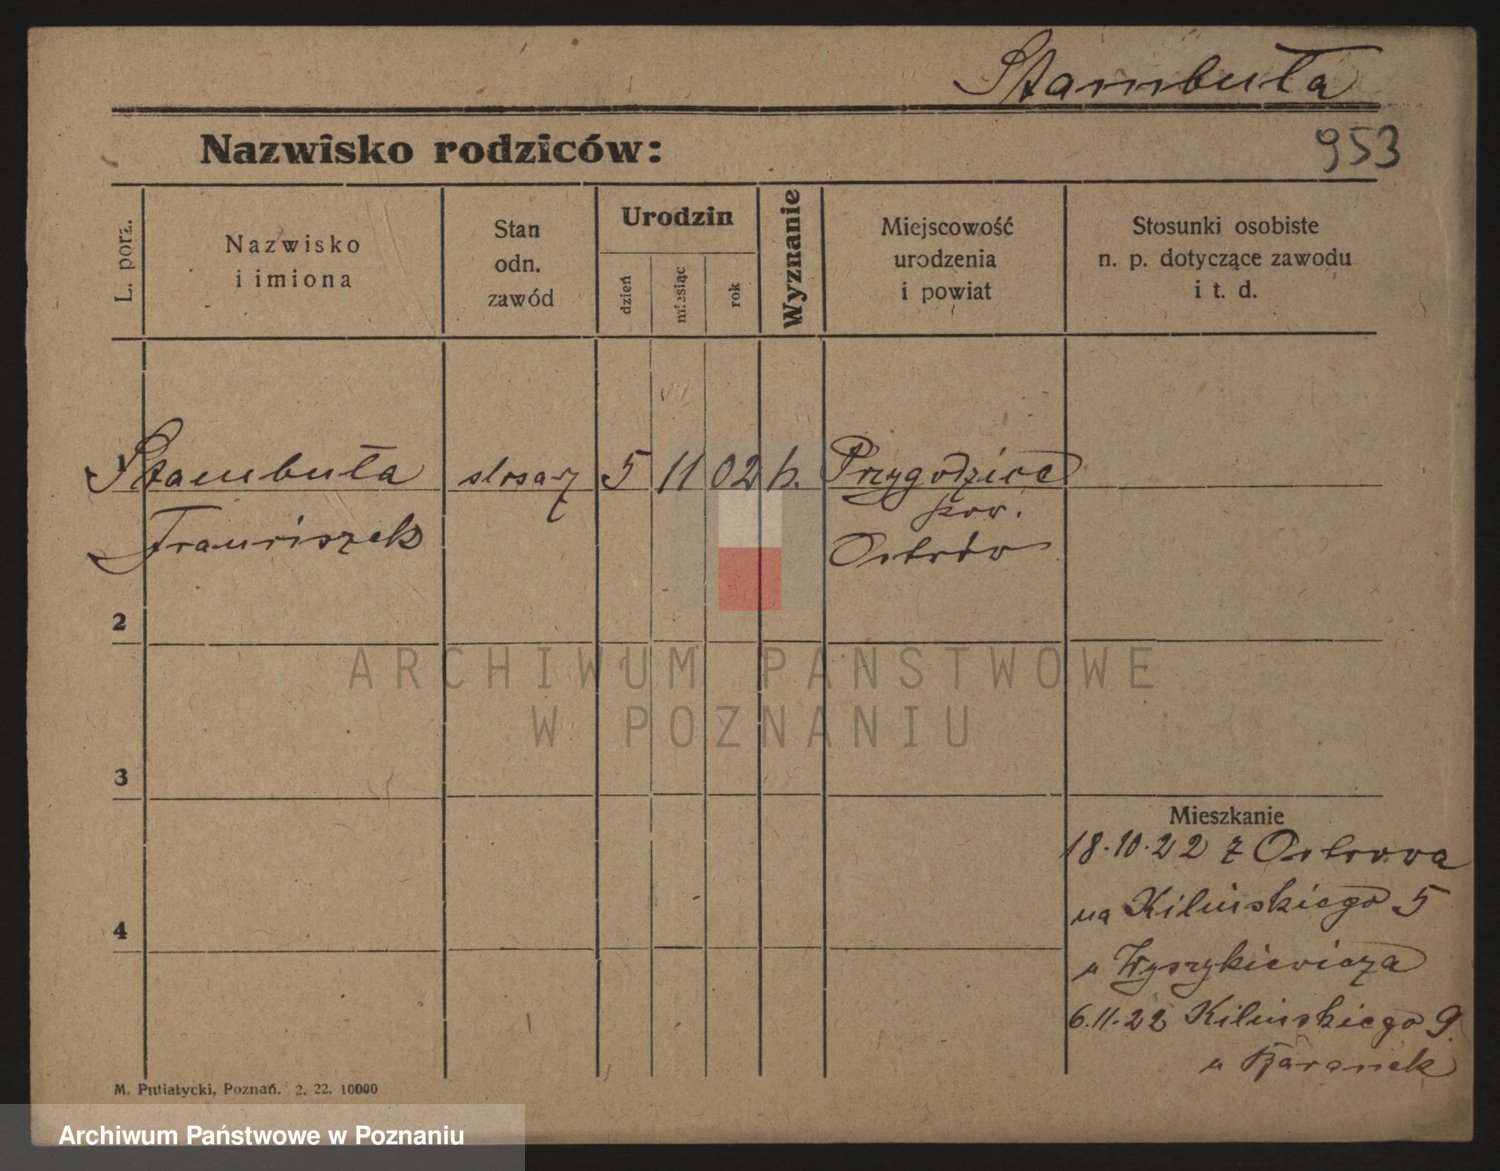 Stambuła
Nazwisko rodziców:
953
L. porz.
Nazwisko
i imiona
Stan
odn.
zawód
Urodzin
dzień
miesiąc
rok
Wyznanie
Miejscowość
urodzenia
i powiat
Stosunki osobiste
n. p. dotyczące zawodu
i t. d.
Stambuła ślosarz 5 11 02 k. Przygodzice
Franciszek pow.
Ostrów
2
ARCHIWUM PAŃSTWOWE
W POZNANIU
3
Mieszkanie
18.10.22 z Ostrowa
na Kilińskiego 5
u Wyszykiewicza
4
6.11.22 Kilińskiego 9
u Baranek
M. Putiatycki, Poznań. 2. 22. 10000
Archiwum Państwowe w Poznaniu